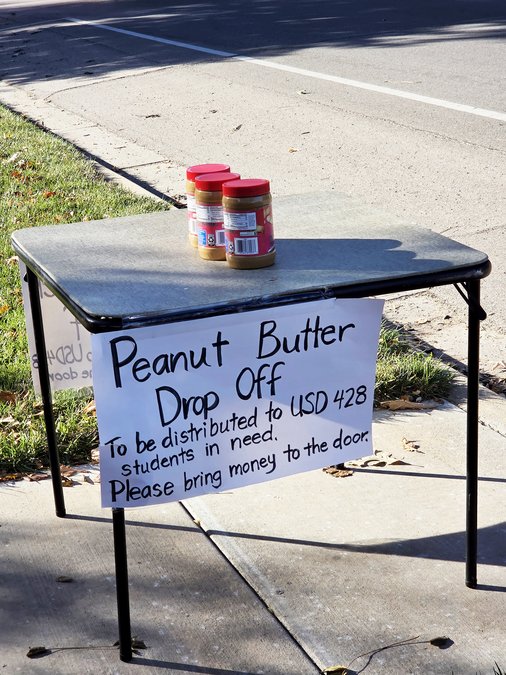 Peanut Butter
Drop Off
To be distributed to USD 428
students in need.
Please bring money to the door.